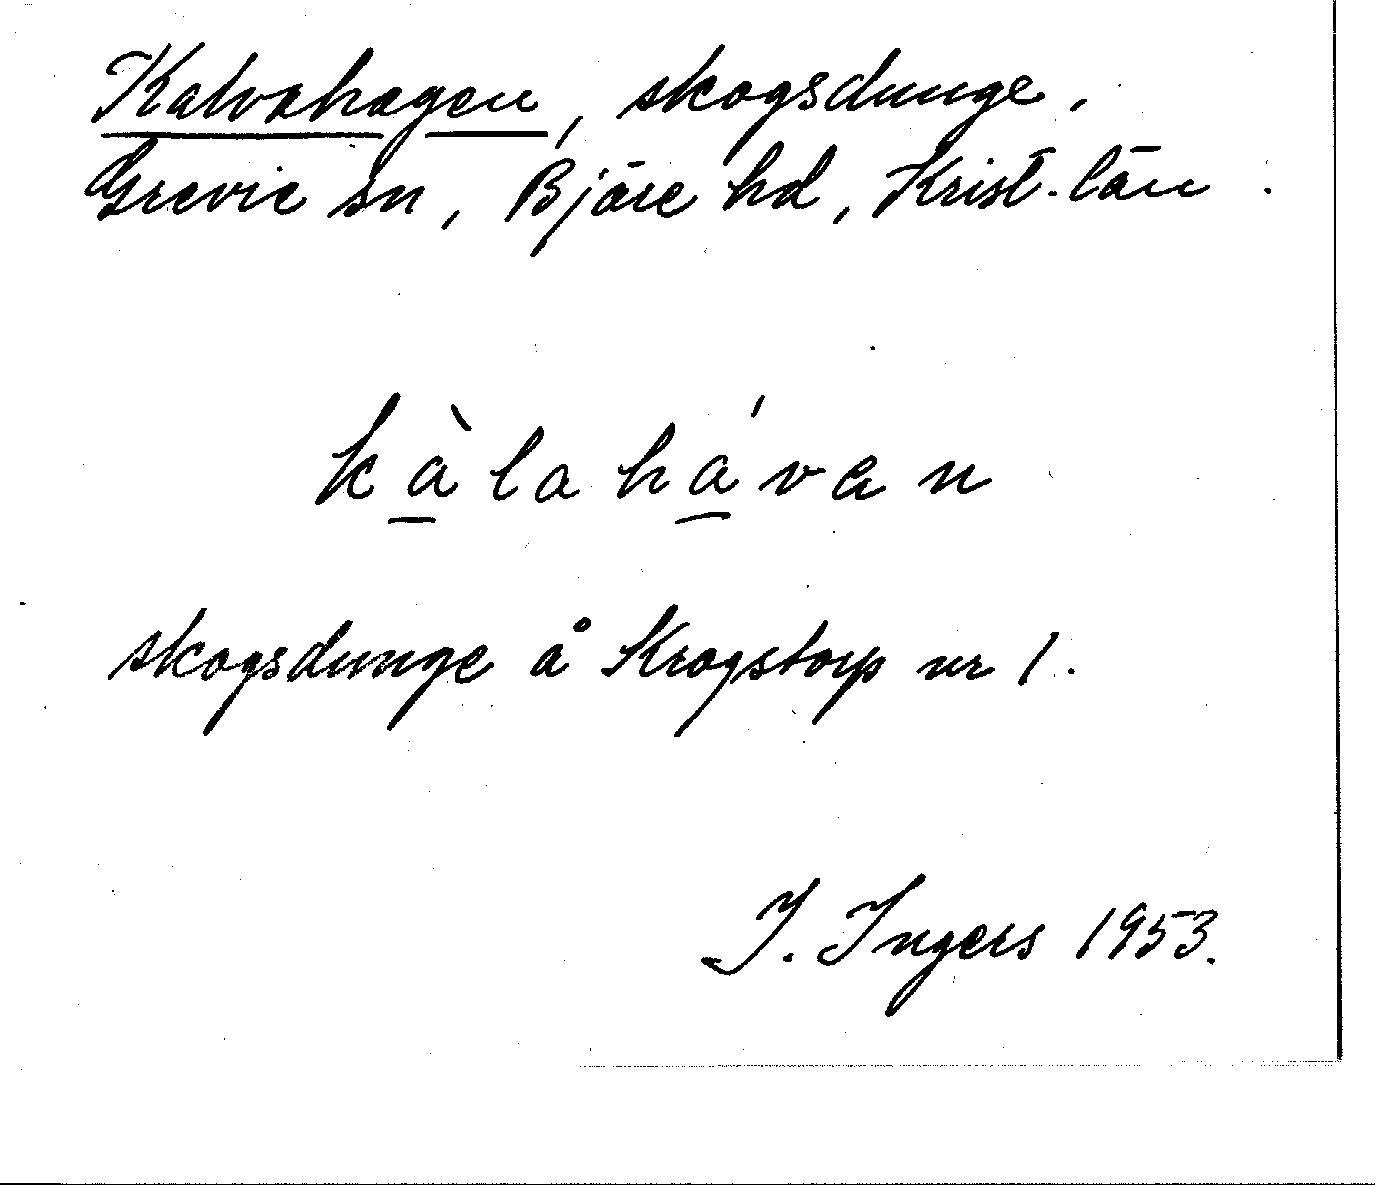 Kalvahagen, skogsdunge.
Grevie sn, Bjäre hd, Krist. län.
kàlahávan
skogsdunge å Krogstorp nr 1.
I. Ingers 1953.